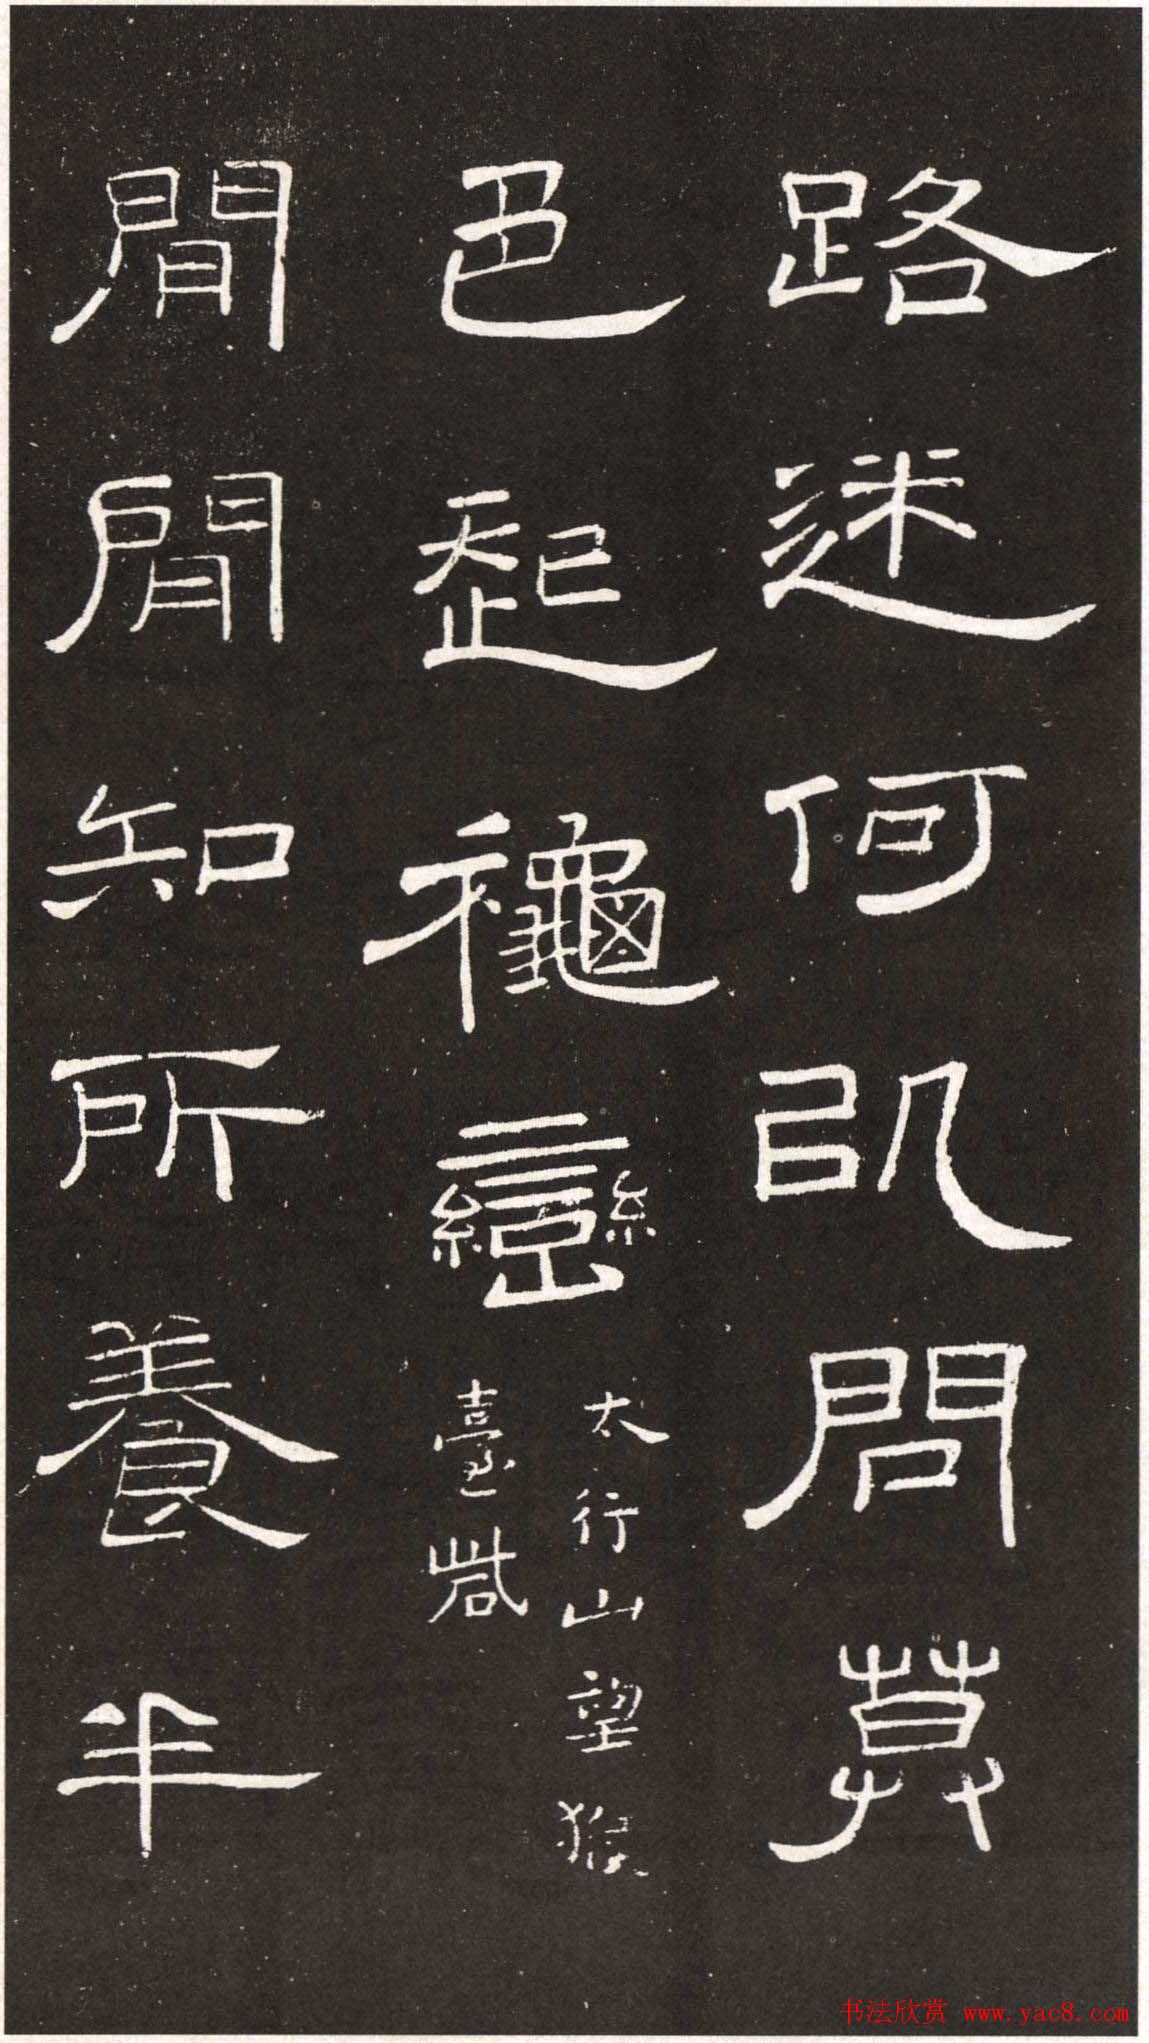 路迷何以問莫
色起龝巒
太行山望猴
臺砦
間閒知所養半
书法欣赏 www.yac8.com